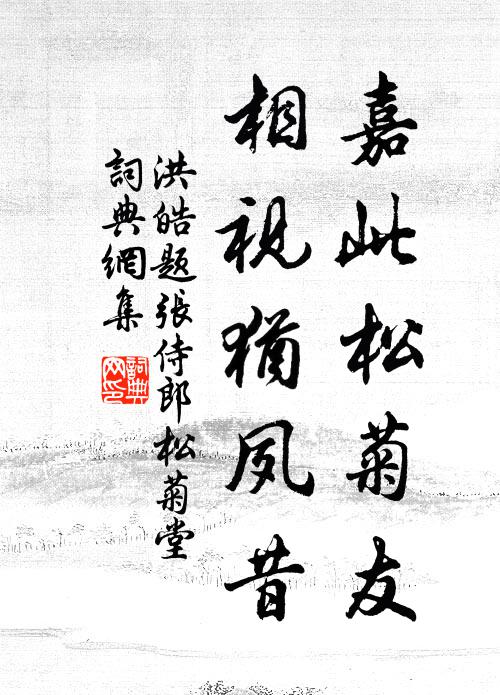 嘉此松菊友
相視猶夙昔
洪皓題張侍郎松菊堂
詞典網集
詞典
网印